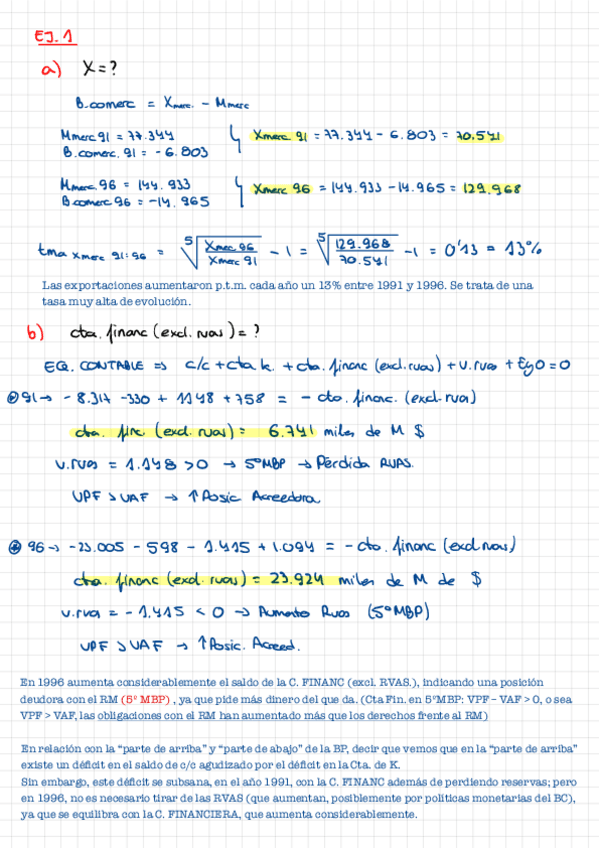 EJ. 1
a) X = ?
B.comerc = Xmerc. - Mmerc
Mmerc 91 = 77.344
B.comerc. 91 = - 6.803
Xmerc 91 = 77.344 - 6.803 = 70.541
Mmerc. 96 = 144.933
B.comerc 96 = -14.965
Xmerc 96 = 144.933 - 14.965 = 129.968
tma Xmerc 91:96 = ⁵√(Xmerc 96 / Xmerc 91) - 1 = ⁵√(129.968 / 70.541) - 1 = 0'13 = 13%
Las exportaciones aumentaron p.t.m. cada año un 13% entre 1991 y 1996. Se trata de una
tasa muy alta de evolución.
b) cta. financ (excl. rvas) = ?
EQ. CONTABLE => c/c + cta k. + cta. financ (excl. rvas) + v.rvas + EyO = 0
91 → - 8.317 - 330 + 1148 + 758 = - cta. financ. (excl. rvas)
cta. finc (excl. rvas) = 6.741 miles de M $
v.rvas = 1.148 > 0 → 5º MBP → Pérdida RVAS.
VPF > VAF → ↑ Posic Acreedora
96 → - 23.005 - 598 - 1.415 + 1.094 = - cta. financ (excl rvas)
cta. financ (excl. rvas) = 23.924 miles de M de $
v.rva = - 1.415 < 0 → Aumento Rvas (5º MBP)
VPF > VAF → ↑ Posic. Acreed.
En 1996 aumenta considerablemente el saldo de la C. FINANC (excl. RVAS.), indicando una posición
deudora con el RM (5º MBP) , ya que pide más dinero del que da. (Cta Fin. en 5ºMBP: VPF – VAF > 0, o sea
VPF > VAF, las obligaciones con el RM han aumentado más que los derechos frente al RM)
En relación con la "parte de arriba" y "parte de abajo" de la BP, decir que vemos que en la "parte de arriba"
existe un déficit en el saldo de c/c agudizado por el déficit en la Cta. de K.
Sin embargo, este déficit se subsana, en el año 1991, con la C. FINANC además de perdiendo reservas; pero
en 1996, no es necesario tirar de las RVAS (que aumentan, posiblemente por políticas monetarias del BC),
ya que se equilibra con la C. FINANCIERA, que aumenta considerablemente.